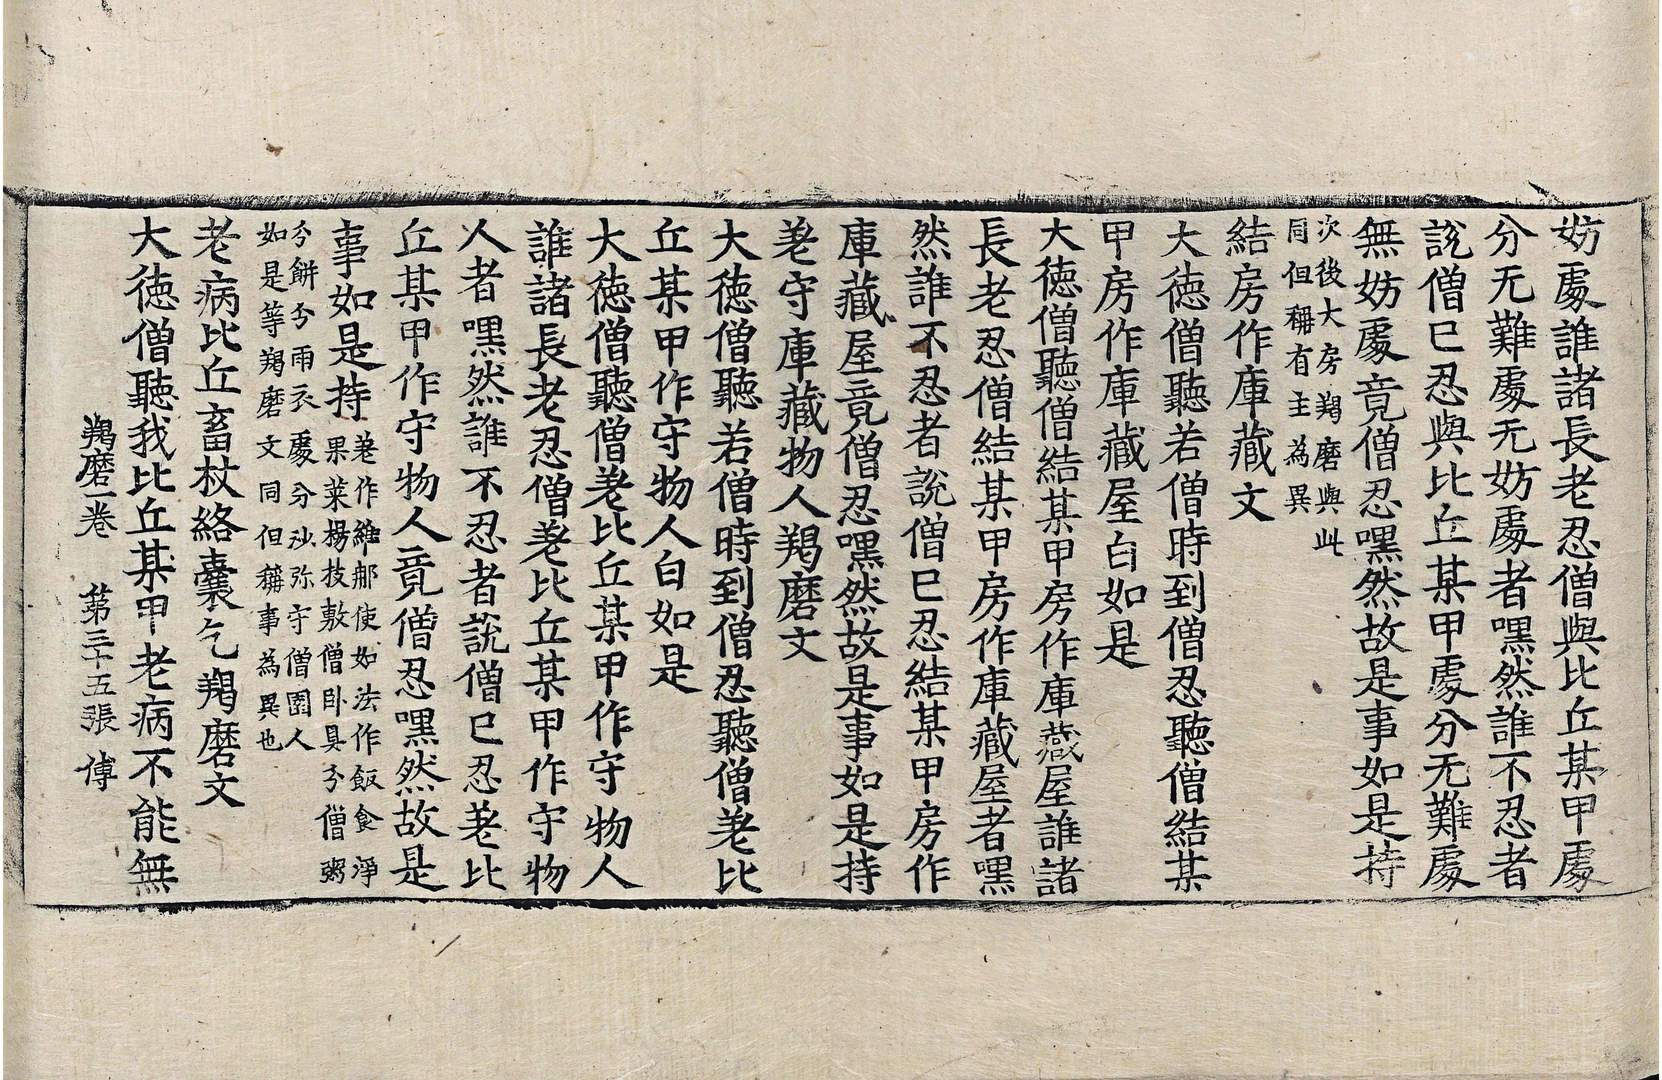 妨處誰諸長老忍僧與比丘某甲處
分无難處无妨處者嘿然誰不忍者
說僧已忍與比丘某甲處分无難處
無妨處竟僧忍嘿然故是事如是持
次後大房羯磨與此
同但稱有主為異
結房作庫藏文
大德僧聽若僧時到僧忍聽僧結某
甲房作庫藏屋白如是
大德僧聽僧結某甲房作庫藏屋誰諸
長老忍僧結某甲房作庫藏屋者嘿
然誰不忍者說僧已忍結某甲房作
庫藏屋竟僧忍嘿然故是事如是持
差守庫藏物人羯磨文
大德僧聽若僧時到僧忍聽僧差比
丘某甲作守物人白如是
大德僧聽僧差比丘某甲作守物人
誰諸長老忍僧差比丘某甲作守物
人者嘿然誰不忍者說僧已忍差比
丘某甲作守物人竟僧忍嘿然故是
事如是持
差作維那使如法作飯食淨
果菜楊枝敷僧卧具分僧粥
分餅分雨衣處分沙弥守僧園人
如是等羯磨文同但稱事為異也
老病比丘畜杖絡囊乞羯磨文
大德僧聽我比丘某甲老病不能無
羯磨一卷 第三十五張 傅